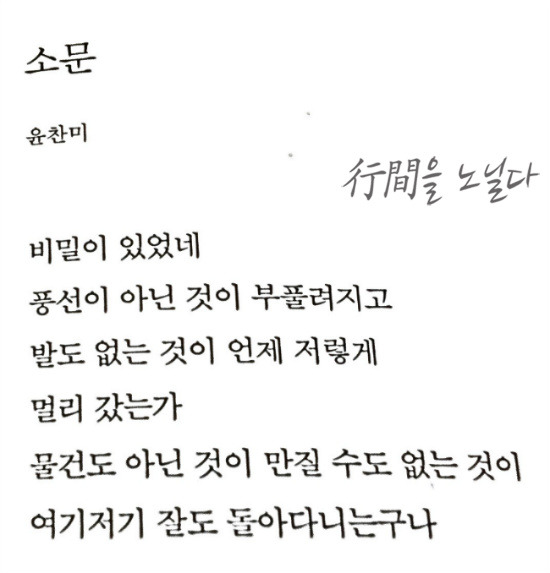 소문
윤찬미
行間을 노닐다
비밀이 있었네
풍선이 아닌 것이 부풀려지고
발도 없는 것이 언제 저렇게
멀리 갔는가
물건도 아닌 것이 만질 수도 없는 것이
여기저기 잘도 돌아다니는구나